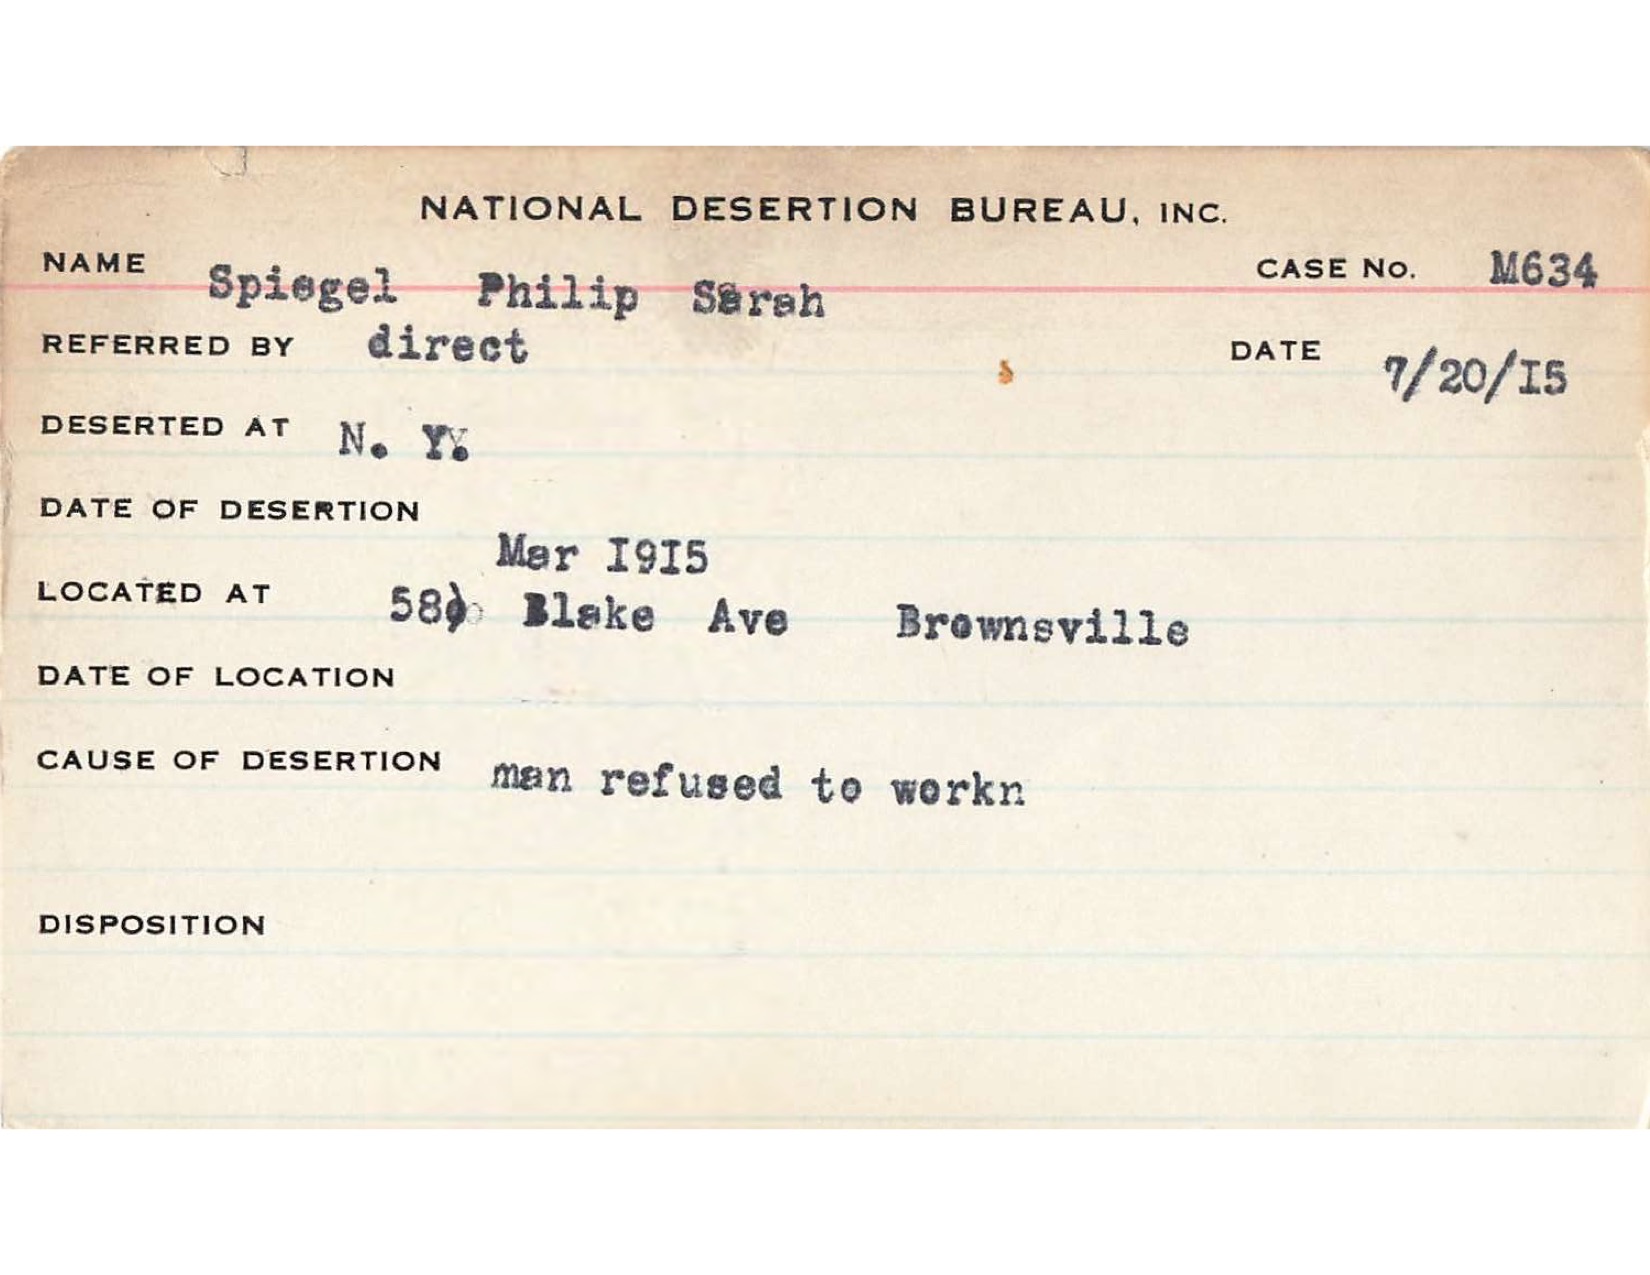 NATIONAL DESERTION BUREAU, INC.
NAME Spiegel Philip Sarah CASE No. M634
REFERRED BY direct DATE 7/20/I5
DESERTED AT N. Y.
DATE OF DESERTION
Mar I9I5
LOCATED AT Blake Ave Brownsville
DATE OF LOCATION
CAUSE OF DESERTION man refused to workn
DISPOSITION